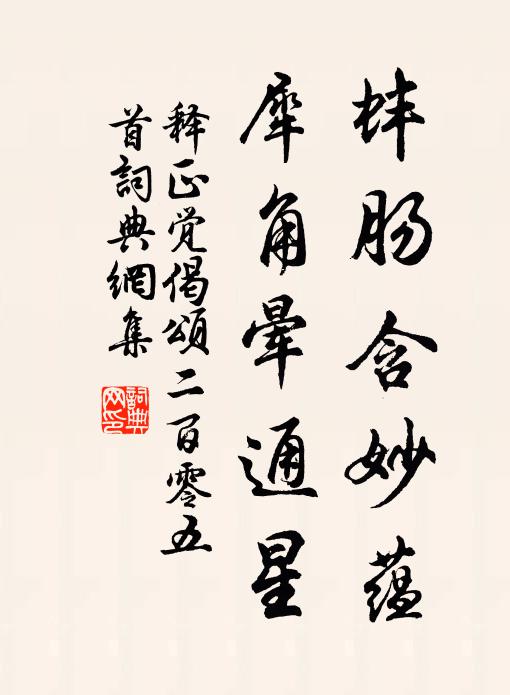 蚌肠含妙蕴
犀角晕通星
释正觉偈颂二百零五
首词典网集
词典网印